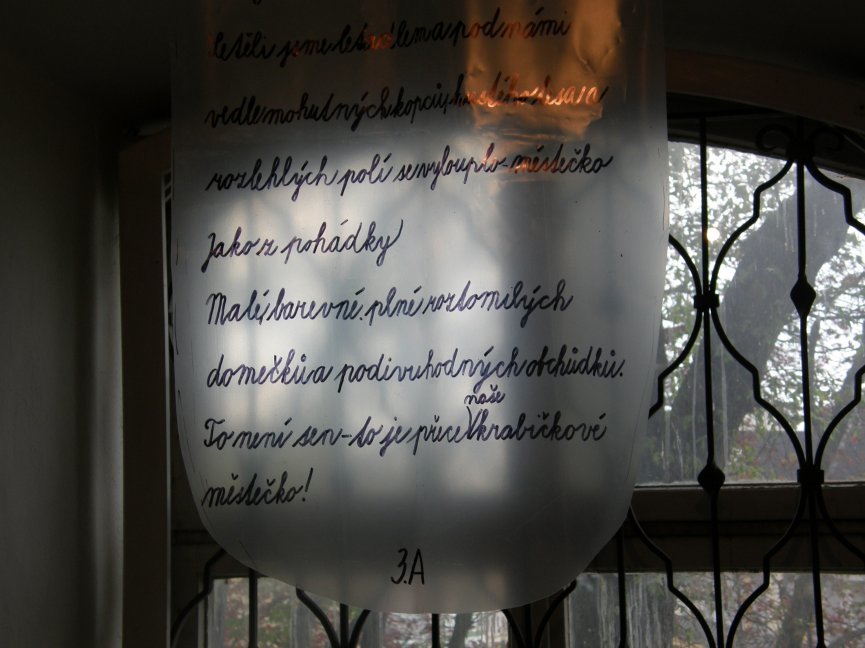 letěli jsme letadlem a pod námi
vedle mohutných kopců, hustého lesa n
rozlehlých polí se vylouplo městečko
Jako z pohádky
Malé, barevné, plné roztomilých
domečků a podivuhodných obchůdků.
To není sen - to je přece naše krabičkové
městečko!
3.A